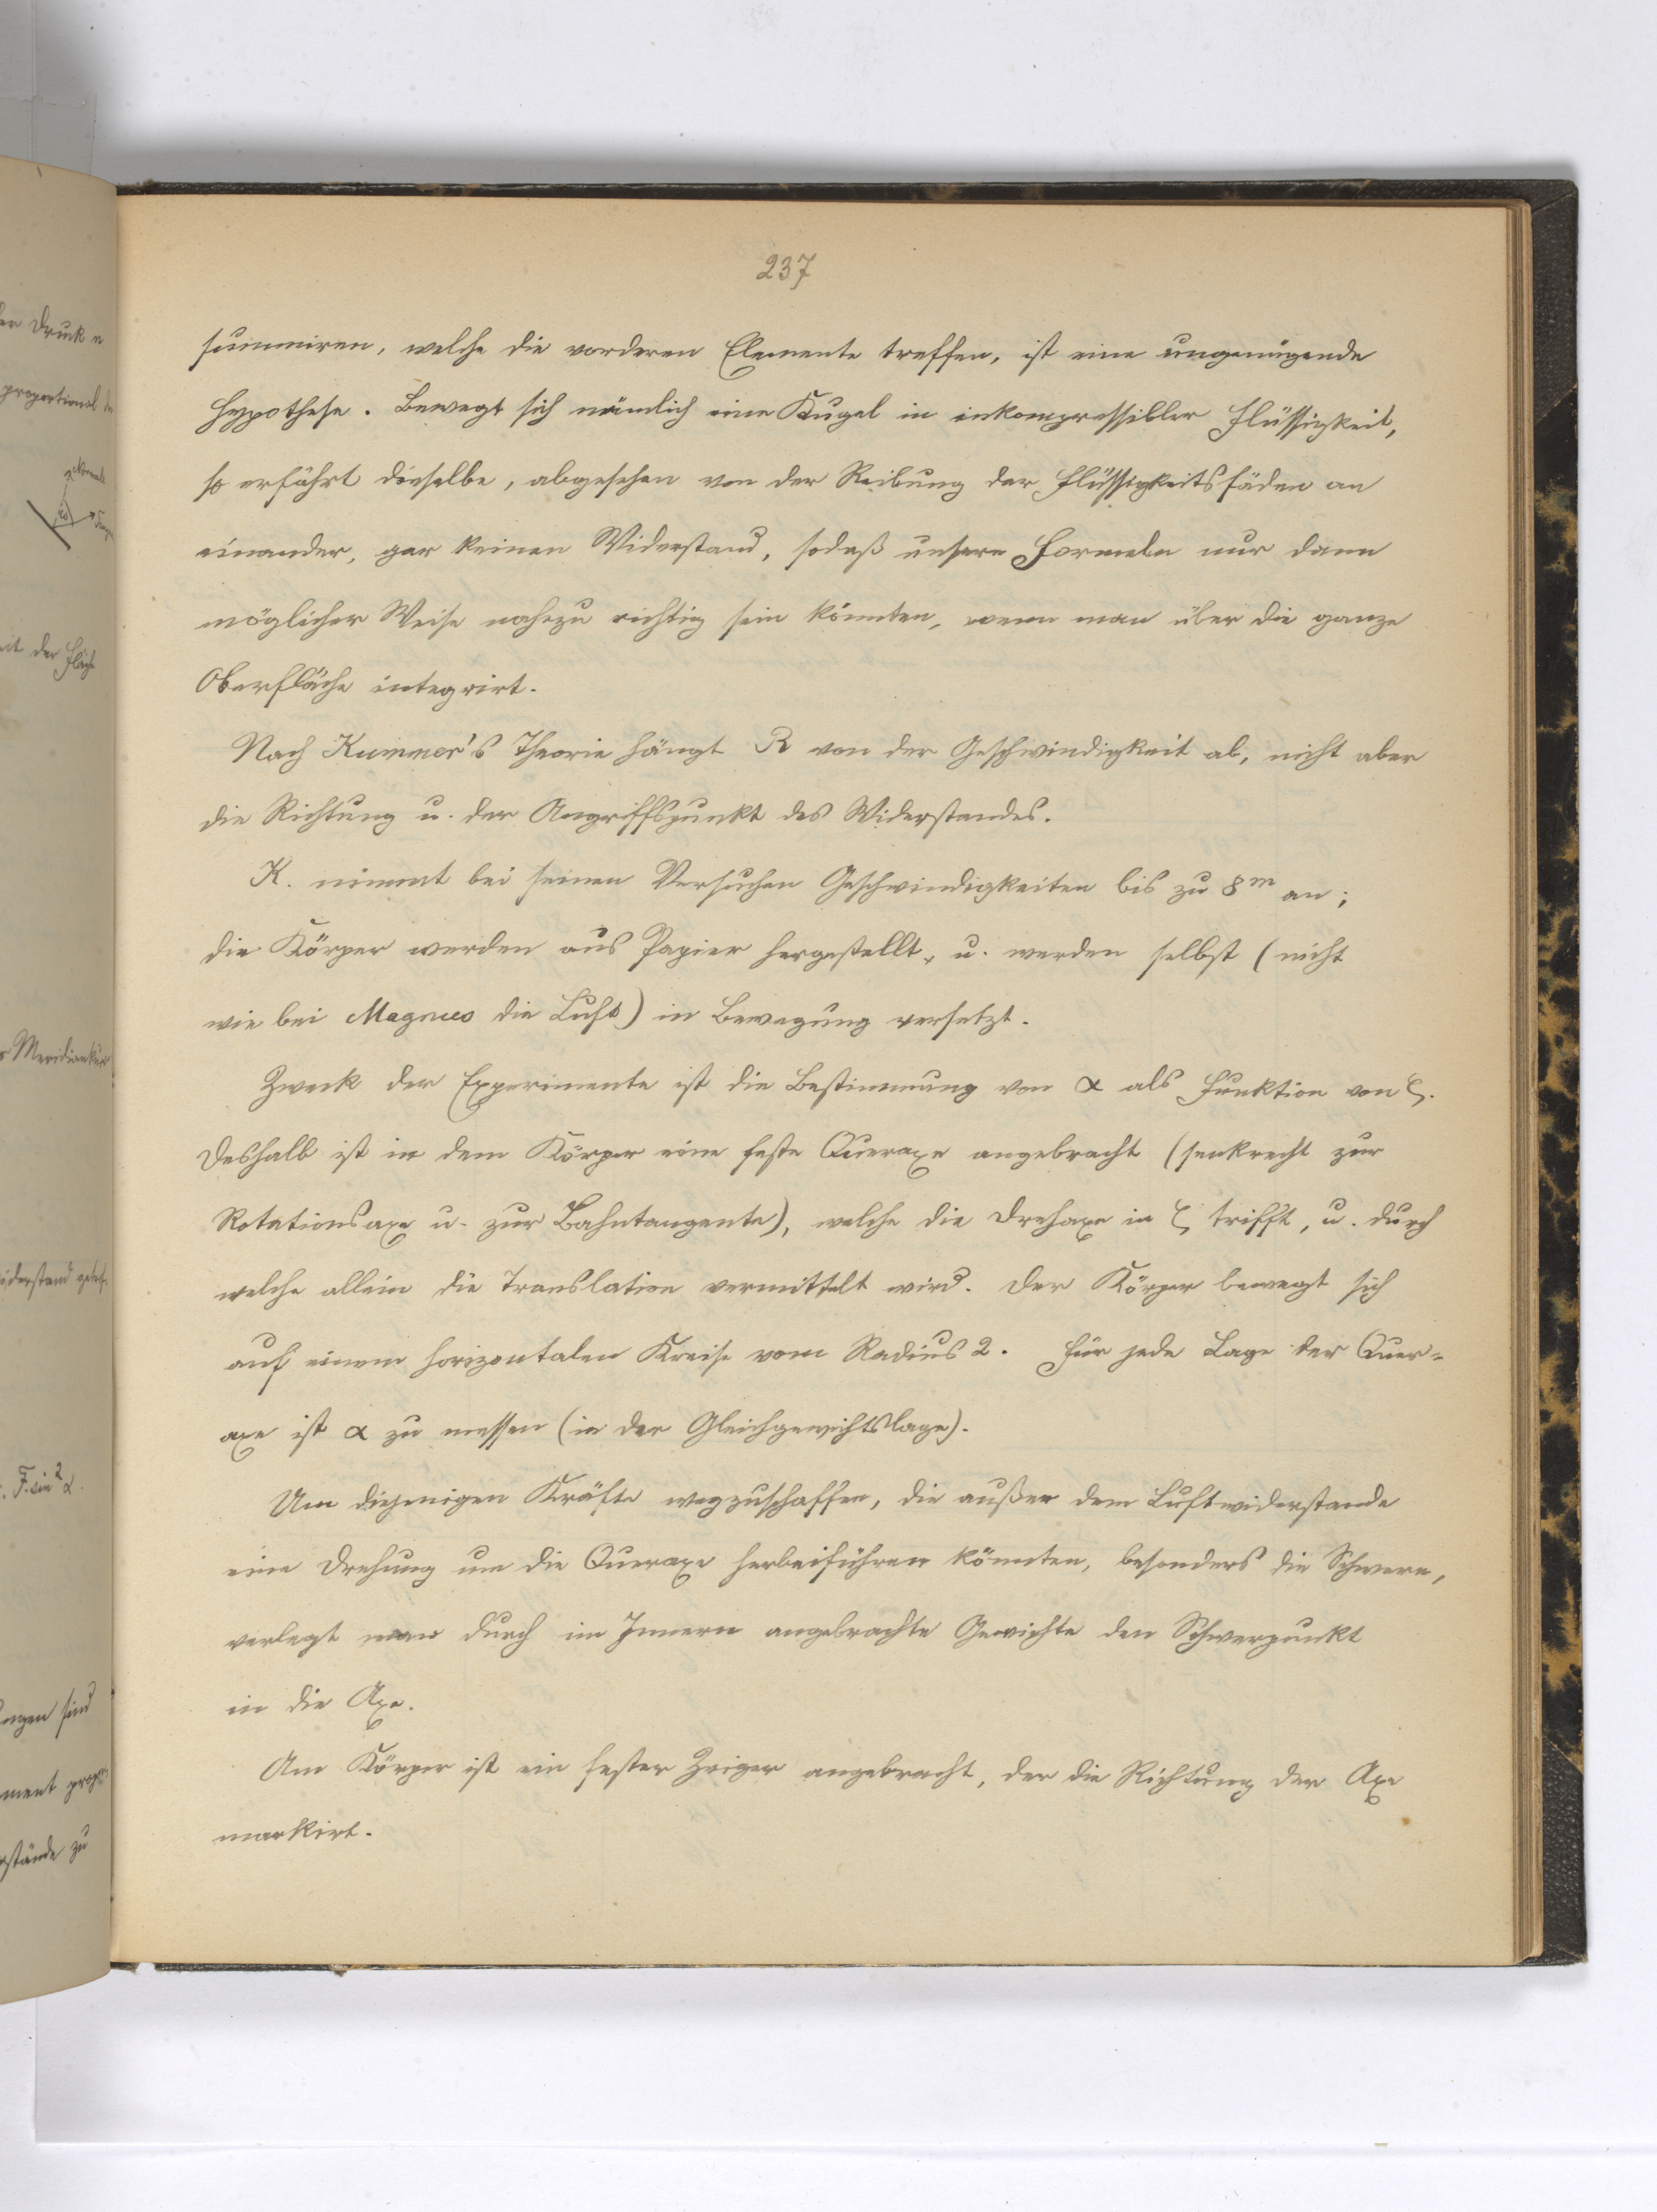 237
summiren, welche die vorderen Elemente treffen, ist eine ungenügende
Hypothese. Bewegt sich nämlich eine Kugel in inkompressibler Flüssigkeit,
so erfährt dieselbe, abgesehen von der Reibung der Flüssigkeitsfäden an
einander, gar keinen Widerstand, sodaß unsere Formeln nur dann
möglicher Weise nahezu richtig sein könnten, wenn man über die ganze
Oberfläche integrirt.
Nach Kummer's Theorie hängt R von der Geschwindigkeit ab, nicht aber
die Richtung u. der Angriffspunkt des Widerstandes.
K. nimmt bei seinen Versuchen Geschwindigkeiten bis zu 8 m an;
die Körper werden aus Papier hergestellt, u. werden selbst (nicht
wie bei Magnus die Luft) in Bewegung versetzt.
Zweck der Experimente ist die Bestimmung von α als Funktion von ζ.
Deshalb ist in dem Körper eine feste Queraxe angebracht (senkrecht zur
Rotationsaxe u. zur Bahntangente), welche die Drehaxe in ζ trifft, u. durch
welche allein die Translation vermittelt wird. Der Körper bewegt sich
auf einem horizontalen Kreise vom Radius 2. Für jede Lage der Quer=
axe ist α zu messen (in der Gleichgewichtslage).
Um diejenigen Kräfte wegzuschaffen, die außer dem Luftwiderstande
eine Drehung um die Queraxe herbeiführen könnten, besonders die Schwere,
verlegt man durch im Innern angebrachte Gewichte den Schwerpunkt
in die Axe.
Am Körper ist ein fester Zeiger angebracht, der die Richtung der Axe
markirt.
er Druck
proportional
Normale
it der
Meridiankur
iderstand
F. sin² α.
ungen sind
ment
stände zu